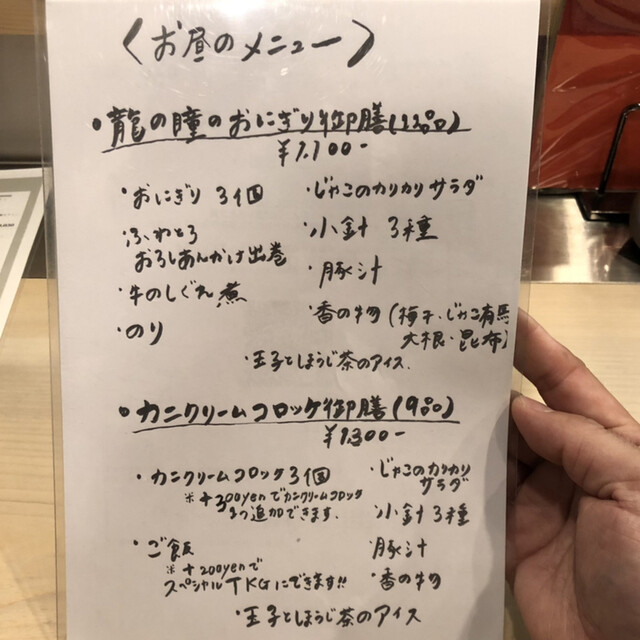 〈お昼のメニュー〉
・龍の瞳のおにぎり御膳(12品)
¥1.100-
・おにぎり 3個
・ふわとろ
おろしあんかけ出巻
・牛のしぐれ煮
・のり
・じゃこのカリカリサラダ
・小針 3種
・豚汁
・香の物(梅干、じゃこ有馬
大根・昆布)
・玉子とほうじ茶のアイス.
・カニクリームコロッケ御膳(9品)
¥1.300-
・カニクリームコロッケ3個
※+300yenでカニクリームコロッケ
1つ追加できます.
・ご飯
※+200yenで
スペシャルTKGにできます!!
・じゃこのカリカリ
サラダ
・小針3種
・豚汁
・香の物
・玉子とほうじ茶のアイス